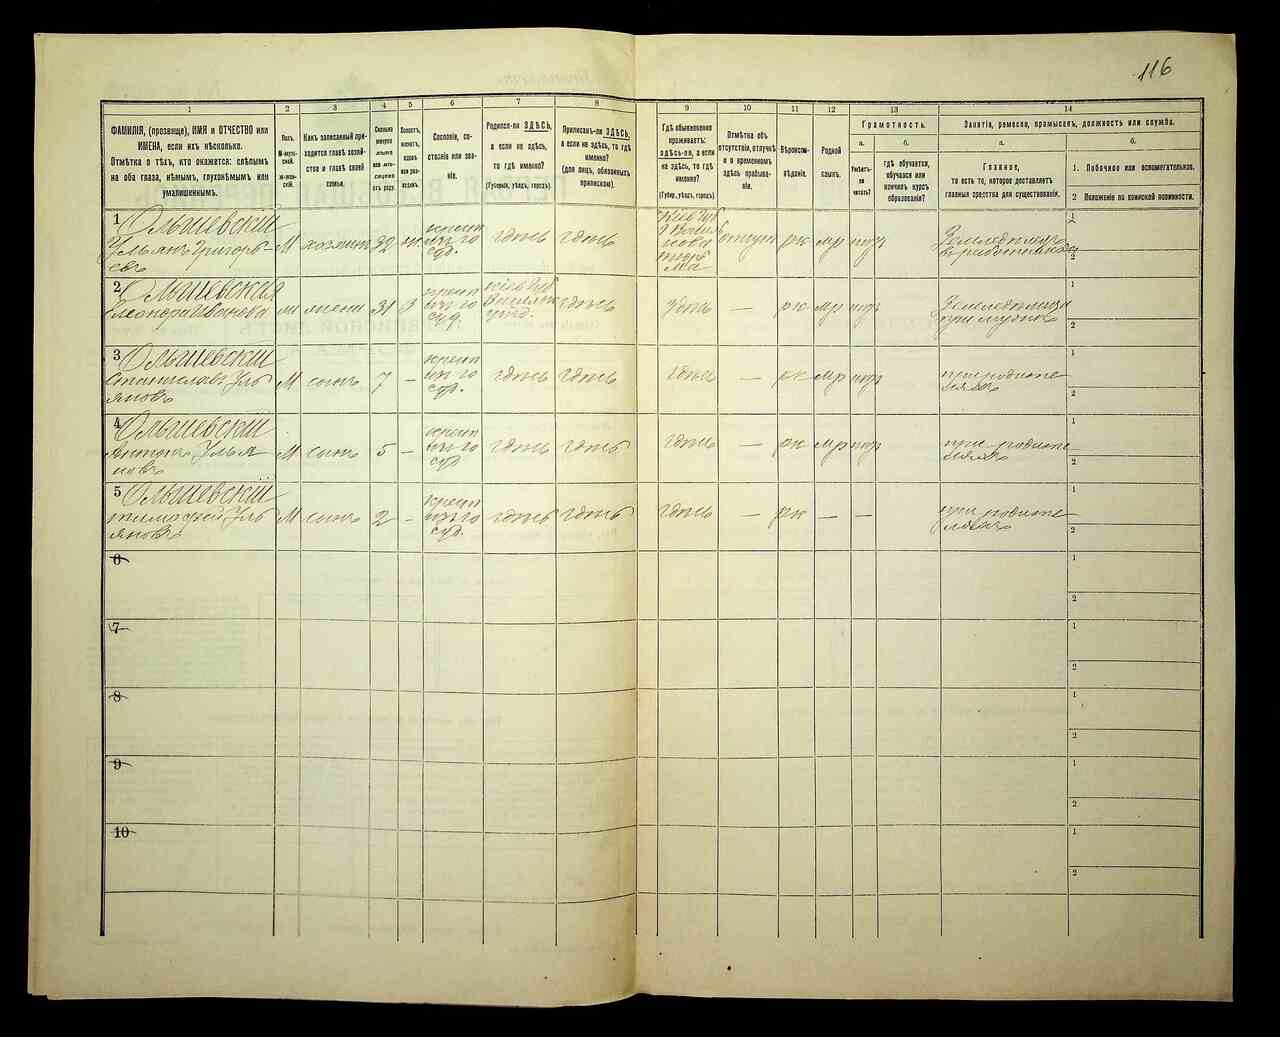 116
1
2
3
4
5
6
7
8
9
10
11
12
13
14
ФАМИЛІЯ, (прозвище), ИМЯ и ОТЧЕСТВО или
ИМЕНА, если ихъ нѣсколько.
Отмѣтка о тѣхъ, кто окажется: слѣпымъ
на оба глаза, нѣмымъ, глухонѣмымъ или
умалишеннымъ.
Полъ.
М-мужской.
ж-женскій.
Какъ записанный приходится
главѣ хозяйства
и главѣ своей
семьи.
Сколько
минуло
лѣтъ
или мѣсяцевъ
отъ роду.
Холостъ,
женатъ,
вдовъ
или разведенъ.
Сословіе, состояніе
или званіе.
Родился-ли ЗДѢСЬ,
а если не здѣсь,
то гдѣ именно?
(Губернія, уѣздъ, городъ).
Приписанъ-ли ЗДѢСЬ,
а если не здѣсь, то гдѣ
именно?
(для лицъ, обязанныхъ
припискою).
Гдѣ обыкновенно
проживаетъ:
здѣсь-ли, а если
не здѣсь, то гдѣ
именно?
(Губер., уѣздъ, городъ).
Отмѣтка объ
отсутствіи, отлучкѣ
и о временномъ
здѣсь пребываніи.
Вѣроисповѣданіе.
Родной
языкъ.
Грамотность.
а.
б.
Умѣетъ-ли
читать?
гдѣ обучается,
обучался или
кончилъ курсъ
образованія?
Занятіе, ремесло, промыселъ, должность или служба.
а.
б.
Главное,
то есть то, которое доставляетъ
главныя средства для существованія.
1. Побочное или вспомогательное.
2 Положеніе по воинской повинности.
1 Ольшевскій
Ульянъ Григорьевъ
М хозяинъ 32 здѣсь здѣсь
отсут рк нѣтъ
1
2
2 Ольшевская
Иванова
жена 31 з
здѣсь здѣсь — рк нѣтъ
1
2
3 Ольшевскій
Станиславъ Ульяновъ
М сынъ 7 — здѣсь здѣсь здѣсь — рк нѣтъ при родителяхъ
1
2
4 Ольшевскій
Антонъ Ульяновъ
М сынъ 5 — здѣсь здѣсь здѣсь — рк нѣтъ при родителяхъ
1
2
5 Ольшевскій
Тимофей Ульяновъ
М сынъ 2 — здѣсь здѣсь здѣсь — рк — — при родителяхъ
1
2
6
1
2
7
1
2
8
1
2
9
1
2
10
1
2